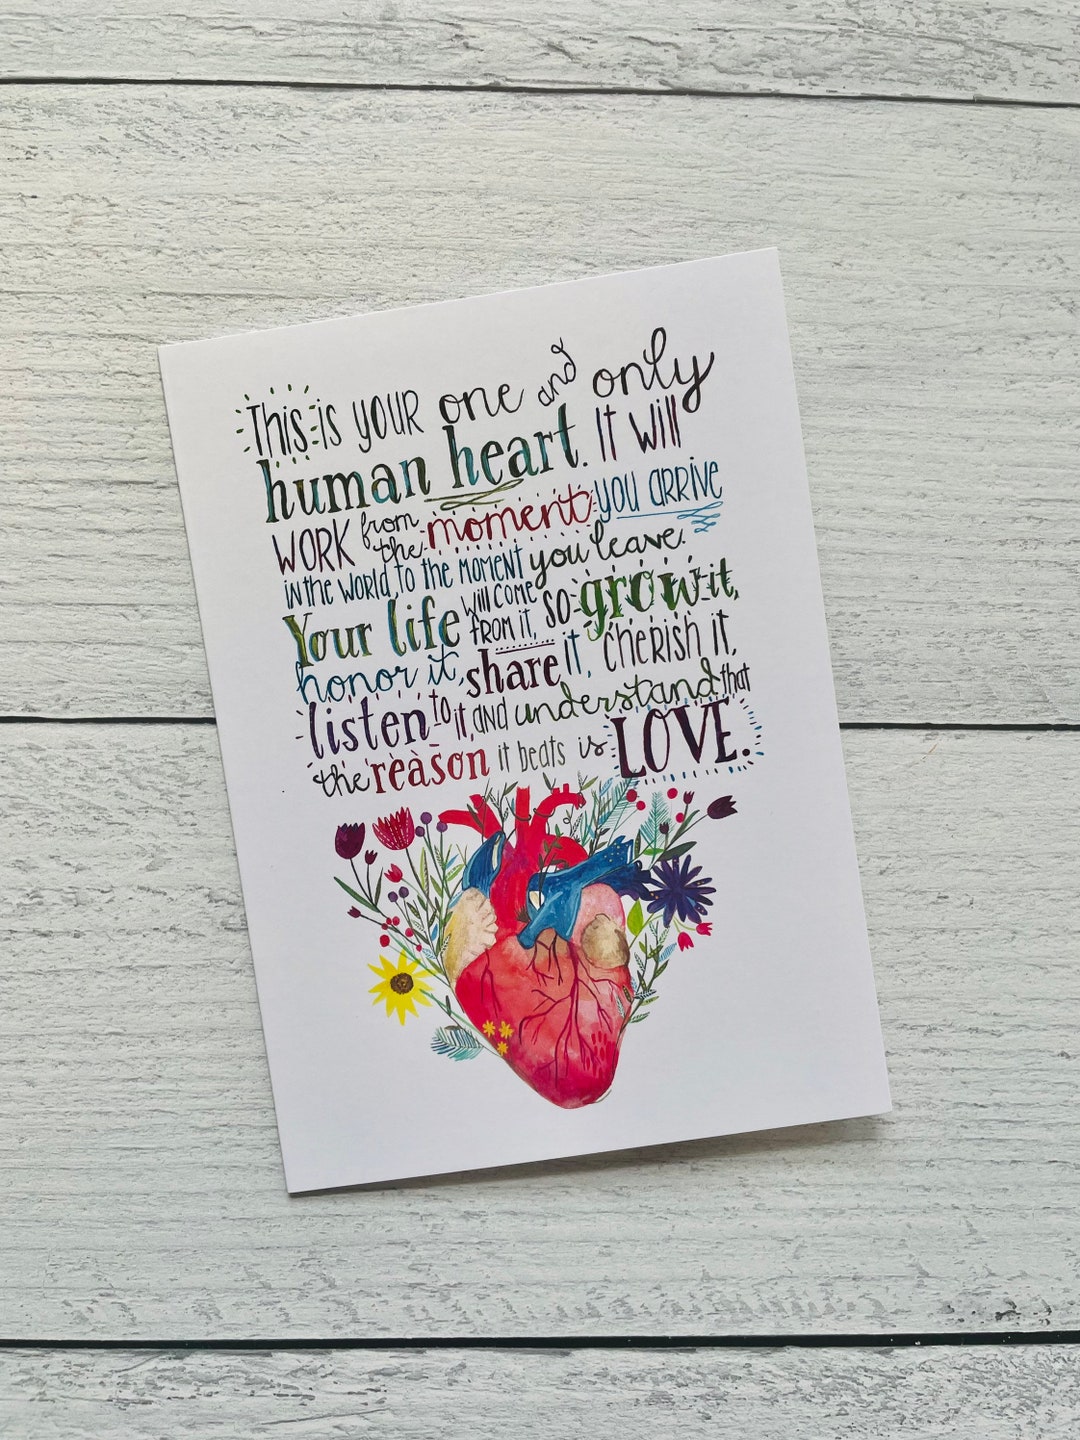 This is YOUR one and only
human heart. IT will
WORK from the moment you ARRIVE
in the WORLD, to the MOMENT you leave.
Your life will COME FROM iT, so grow it,
honor it, share iT, CHERISH iT,
listen to it, AND understand that
the reason it beats is LOVE.